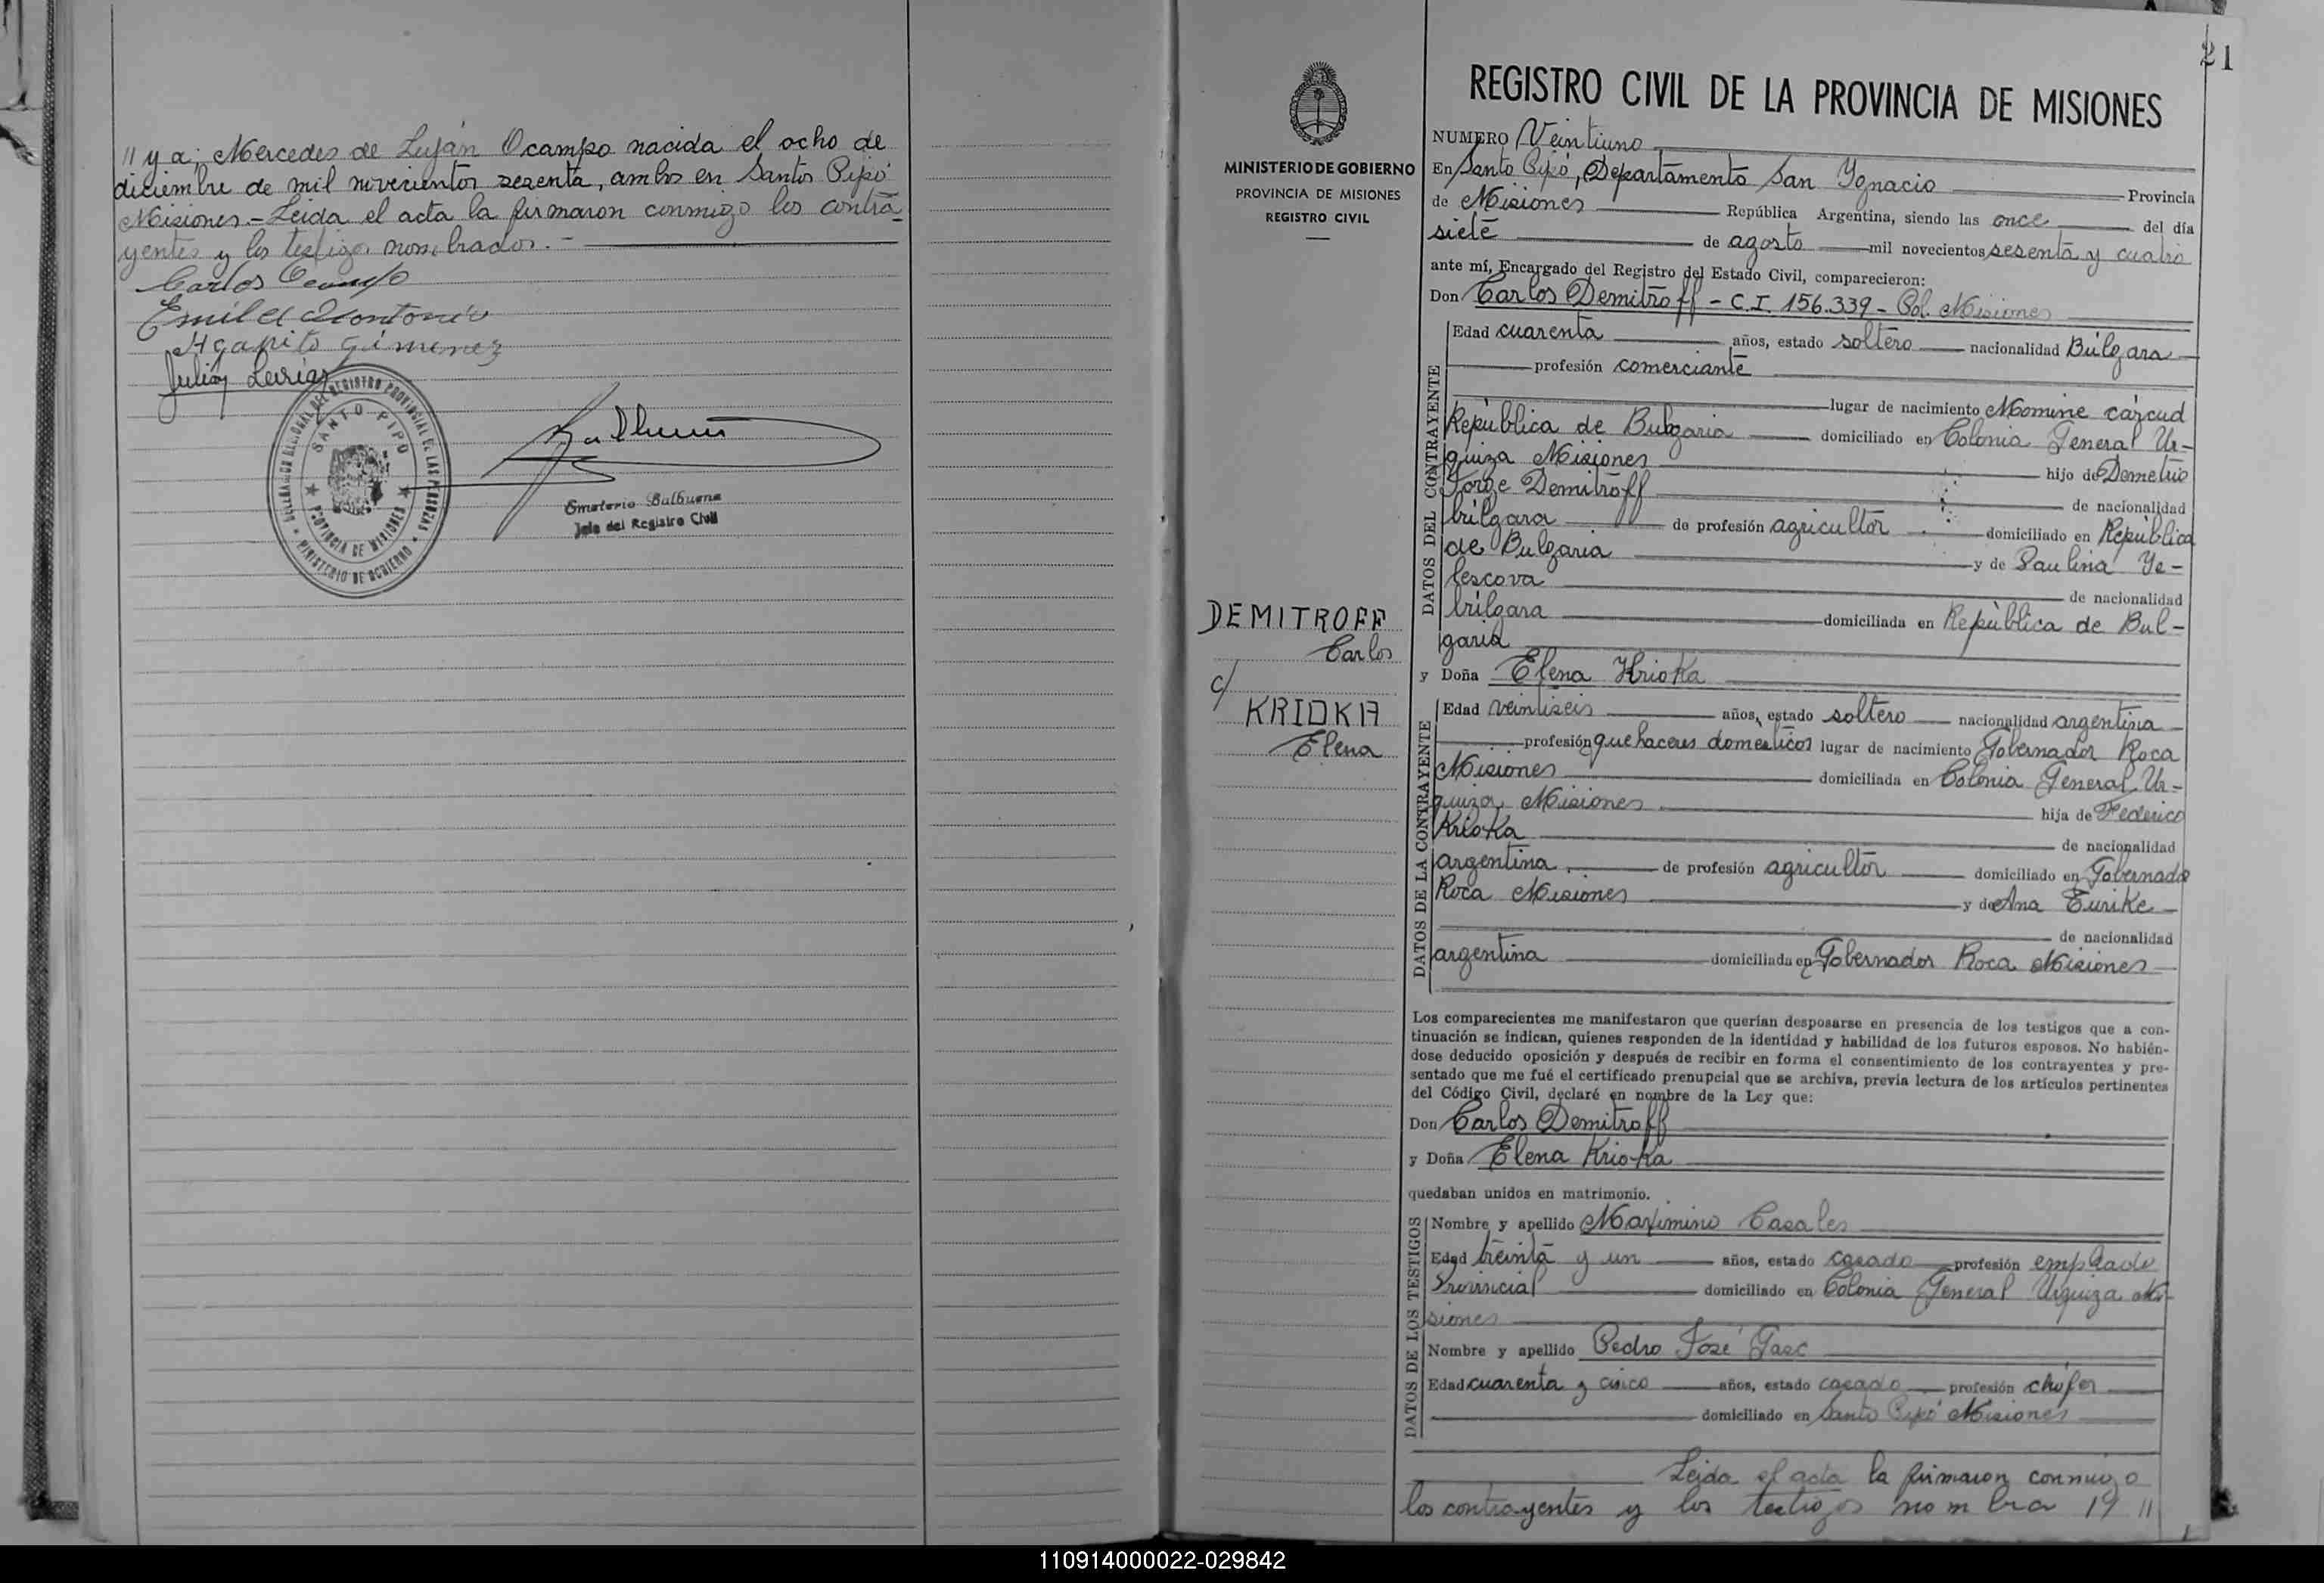 // y a; Mercedes de Luján Ocampo nacida el ocho de
diciembre de mil novecientos sesenta, ambos en Santo Pipó
Misiones.- Leida el acta la firmaron conmigo los contra-
yentes y los testigos nombrados.-
Carlos Ocampo
Emilia
Agapito Gimenez
Julia
DELEGACION REGIONAL DEL REGISTRO PROVINCIAL DE LAS PERSONAS
SANTO PIPO
PROVINCIA DE MISIONES
MINISTERIO DE GOBIERNO
Emeterio Balbuena
Jefe del Registro Civil
21
MINISTERIO DE GOBIERNO
PROVINCIA DE MISIONES
REGISTRO CIVIL
DEMITROFF
Carlos
c/
KRIOKA
Elena
REGISTRO CIVIL DE LA PROVINCIA DE MISIONES
NUMERO Veintiuno
En Santo Pipó, Departamento San Ygnacio Provincia
de Misiones República Argentina, siendo las once del día
siete de agosto mil novecientos sesenta y cuatro
ante mí, Encargado del Registro del Estado Civil, comparecieron:
Don Carlos Demitroff - C.I. 156.339 - Pol. Misiones
DATOS DEL CONTRAYENTE
Edad cuarenta años, estado soltero nacionalidad Búlgara
profesión comerciante
lugar de nacimiento Momine carcud
República de Bulgaria domiciliado en Colonia General Ur-
quiza Misiones hijo de Demetrio
Jorge Demitroff de nacionalidad
búlgara de profesión agricultor domiciliado en República
de Bulgaria y de Paulina Ye-
lescova de nacionalidad
búlgara domiciliada en República de Bul-
garia
y Doña Elena Krioka
DATOS DE LA CONTRAYENTE
Edad veintiseis años, estado soltero nacionalidad argentina
profesión quehaceres domesticos lugar de nacimiento Gobernador Roca
Misiones domiciliada en Colonia General Ur-
quiza Misiones hija de Federico
Krioka de nacionalidad
argentina de profesión agricultor domiciliado en Gobernador
Roca Misiones y de Ana Eurike
de nacionalidad
argentina domiciliada en Gobernador Roca Misiones
Los comparecientes me manifestaron que querían desposarse en presencia de los testigos que a con-
tinuación se indican, quienes responden de la identidad y habilidad de los futuros esposos. No habién-
dose deducido oposición y después de recibir en forma el consentimiento de los contrayentes y pre-
sentado que me fué el certificado prenupcial que se archiva, previa lectura de los artículos pertinentes
del Código Civil, declaré en nombre de la Ley que:
Don Carlos Demitroff
y Doña Elena Krioka
quedaban unidos en matrimonio.
DATOS DE LOS TESTIGOS
Nombre y apellido Maximino Casales
Edad treinta y un años, estado casado profesión empleado
Provincial domiciliado en Colonia General Urquiza Mi-
siones
Nombre y apellido Pedro José Gasc
Edad cuarenta y cinco años, estado casado profesión chofer
domiciliado en Santo Pipó Misiones
Leida el acta la firmaron conmigo
los contrayentes y los testigos nombra 19 //
110914000022-029842